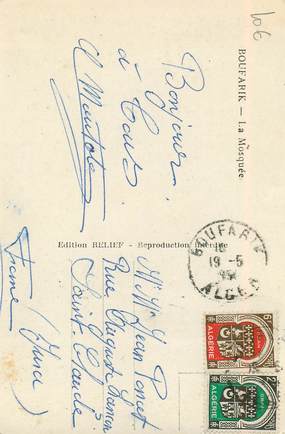 10€
BOUFARIK — La Mosquée
Bonjour
à tous.
Edition RELIEF - Reproduction interdite
BOUFARIK
19-5
ALGER
M. Mme Jean Poncet
Rue Auguste
Saint Claude
(Jura)
6F
ALGERIE
2F
ALGERIE